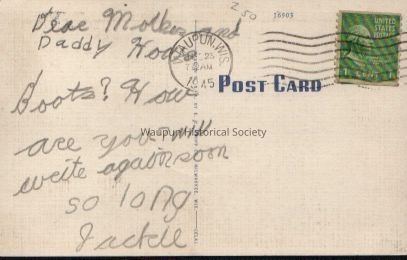 Dear Mother and
Daddy How
Boots? How
are you will
write again soon
so long
Jackie
250
16903
WAUPUN, WIS.
25
AM
POST CARD
UNITED STATES
POSTAGE
1
Waupun Historical Society